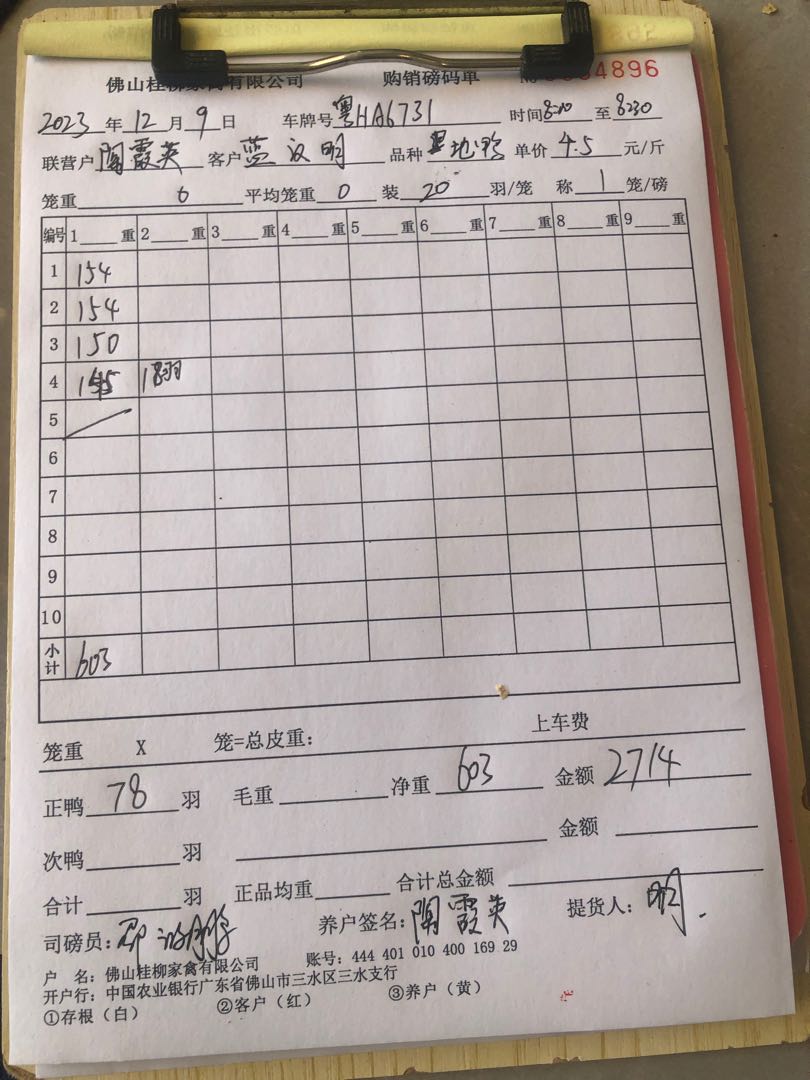 佛山桂柳家禽有限公司 购销磅码单 No 4896
2023 年 12 月 9 日 车牌号 粤HA6731 时间 8:20 至 8:30
联营户 陶霞英 客户 蓝汉明 品种 黑地鸭 单价 4.5 元/斤
笼重 0 平均笼重 0 装 20 羽/笼 称 1 笼/磅
编号 1 重 2 重 3 重 4 重 5 重 6 重 7 重 8 重 9 重
1 154
2 154
3 150
4 145 18羽
5
6
7
8
9
10
小计 603
笼重 X 笼=总皮重: 上车费
正鸭 78 羽 毛重 净重 603 金额 2714
次鸭 羽 金额
合计 羽 正品均重 合计总金额
司磅员: 养户签名: 陶霞英 提货人: 明
户 名: 佛山桂柳家禽有限公司 账号: 444 401 010 400 169 29
开户行: 中国农业银行广东省佛山市三水区三水支行
①存根（白） ②客户（红） ③养户（黄）